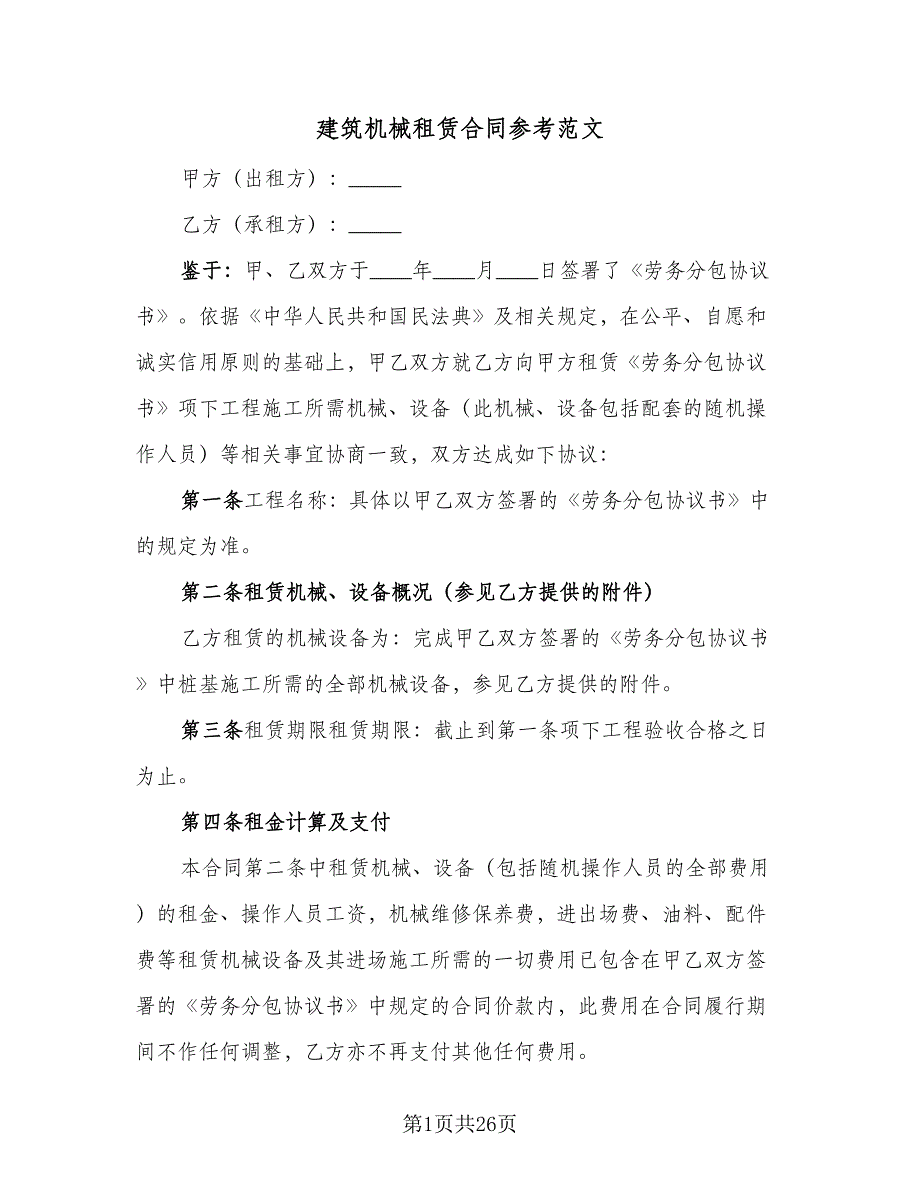 建筑机械租赁合同参考范文
甲方（出租方）：_____
乙方（承租方）：_____
鉴于：甲、乙双方于____年____月____日签署了《劳务分包协议
书》。依据《中华人民共和国民法典》及相关规定，在公平、自愿和
诚实信用原则的基础上，甲乙双方就乙方向甲方租赁《劳务分包协议
书》项下工程施工所需机械、设备（此机械、设备包括配套的随机操
作人员）等相关事宜协商一致，双方达成如下协议：
第一条工程名称：具体以甲乙双方签署的《劳务分包协议书》中
的规定为准。
第二条租赁机械、设备概况（参见乙方提供的附件）
乙方租赁的机械设备为：完成甲乙双方签署的《劳务分包协议书
》中桩基施工所需的全部机械设备，参见乙方提供的附件。
第三条租赁期限租赁期限：截止到第一条项下工程验收合格之日
为止。
第四条租金计算及支付
本合同第二条中租赁机械、设备（包括随机操作人员的全部费用
）的租金、操作人员工资，机械维修保养费，进出场费、油料、配件
费等租赁机械设备及其进场施工所需的一切费用已包含在甲乙双方签
署的《劳务分包协议书》中规定的合同价款内，此费用在合同履行期
间不作任何调整，乙方亦不再支付其他任何费用。
第1页共26页